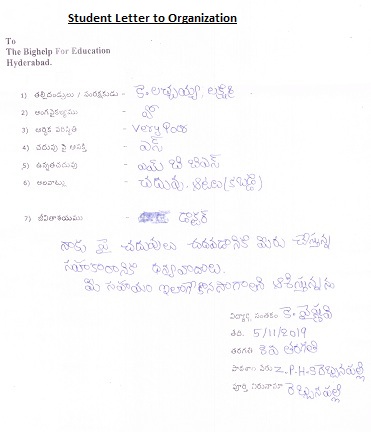 Student Letter to Organization
To
The Bighelp For Education
Hyderabad.
1) తల్లిదండ్రులు / సంరక్షకుడు - కె. లచ్చయ్య, లక్ష్మి
2) అంగవైకల్యము -
3) ఆర్థిక పరిస్థితి - very Poor
4) చదువు పై ఆసక్తి - ఎస్
5) ఉన్నతచదువు - ఎమ్ బి బిఎస్
6) అలవాట్లు - చదువు, ఆటలు (కబడ్డి)
7) జీవితాశయము - డాక్టర్
నాకు పై చదువులు చదవడానికి మీరు చేస్తున్న
సహకారానికి ధన్యవాదాలు.
మీ సహాయం ఇలాగే కొనసాగాలని ఆశిస్తున్నాను
విద్యార్థి సంతకం కె. వైష్ణవి
తేది. 5/11/2019
తరగతి 8వ తరగతి
పాఠశాల పేరు Z.P.H.S రెబ్బనపల్లి
పూర్తి చిరునామా రెబ్బనపల్లి